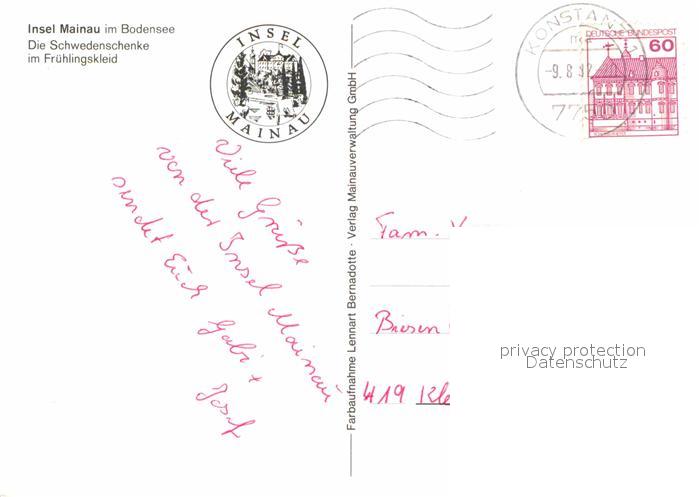 Insel Mainau im Bodensee
Die Schwedenschenke
im Frühlingskleid
INSEL
MAINAU
Viele Grüße
von der Insel Mainau
sendet Euch Gabi +
Josef
Farbaufnahme Lennart Bernadotte · Verlag Mainauverwaltung GmbH
KONSTANZ 1
-9. 8
775
DEUTSCHE BUNDESPOST
60
Fam.
419 Kle
privacy protection
Datenschutz